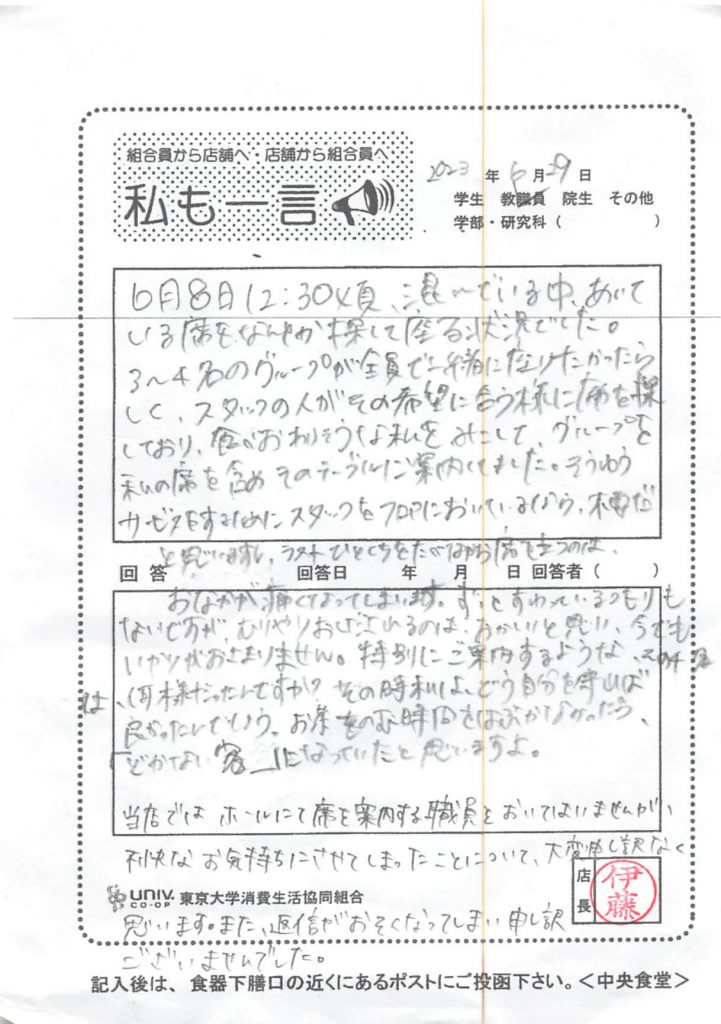 組合員から店舗へ・店舗から組合員へ
私も一言
2023 年 6 月 29 日
学生 教職員 院生 その他
学部・研究科 ( )
6月8日12:30頃、混んでいる中、あいて
いる席をなんとか探して座る状況でした。
3~4名のグループが全員で一緒に座りたかったら
しく、スタッフの人がその希望に合う様に席を探
しており、食べおわりそうな私をみこして、グループを
私の席を含めそのテーブルにご案内してました。そうゆう
サービスをするためにスタッフをフロアにおいているなら、不要だ
と思いますし、ラストひとくちをたべながら席を立つのは、
回 答 回答日 年 月 日 回答者 ( )
おなかが痛くなってしまいます。ずっとすわっているつもりも
ないですが、むりやりおい立されるのは、おかしいと思い、今でも
いかりがおさまりません。特別にご案内するような、その4名
は、何様だったんですか? その時私は、どう自分を守れば
良かったんでしょう。お茶をのむ時間をはぶかなかったら、
「どかない客」になっていたと思いますよ。
当店では ホールにて席を案内する職員を おいてはいませんが、
不快な お気持ちにさせてしまったことについて、大変申し訳なく
UNIV. CO-OP 東京大学消費生活協同組合
店長 伊藤
思います。また、返信がおそくなってしまい 申し訳
ございませんでした。
記入後は、食器下膳口の近くにあるポストにご投函下さい。<中央食堂>